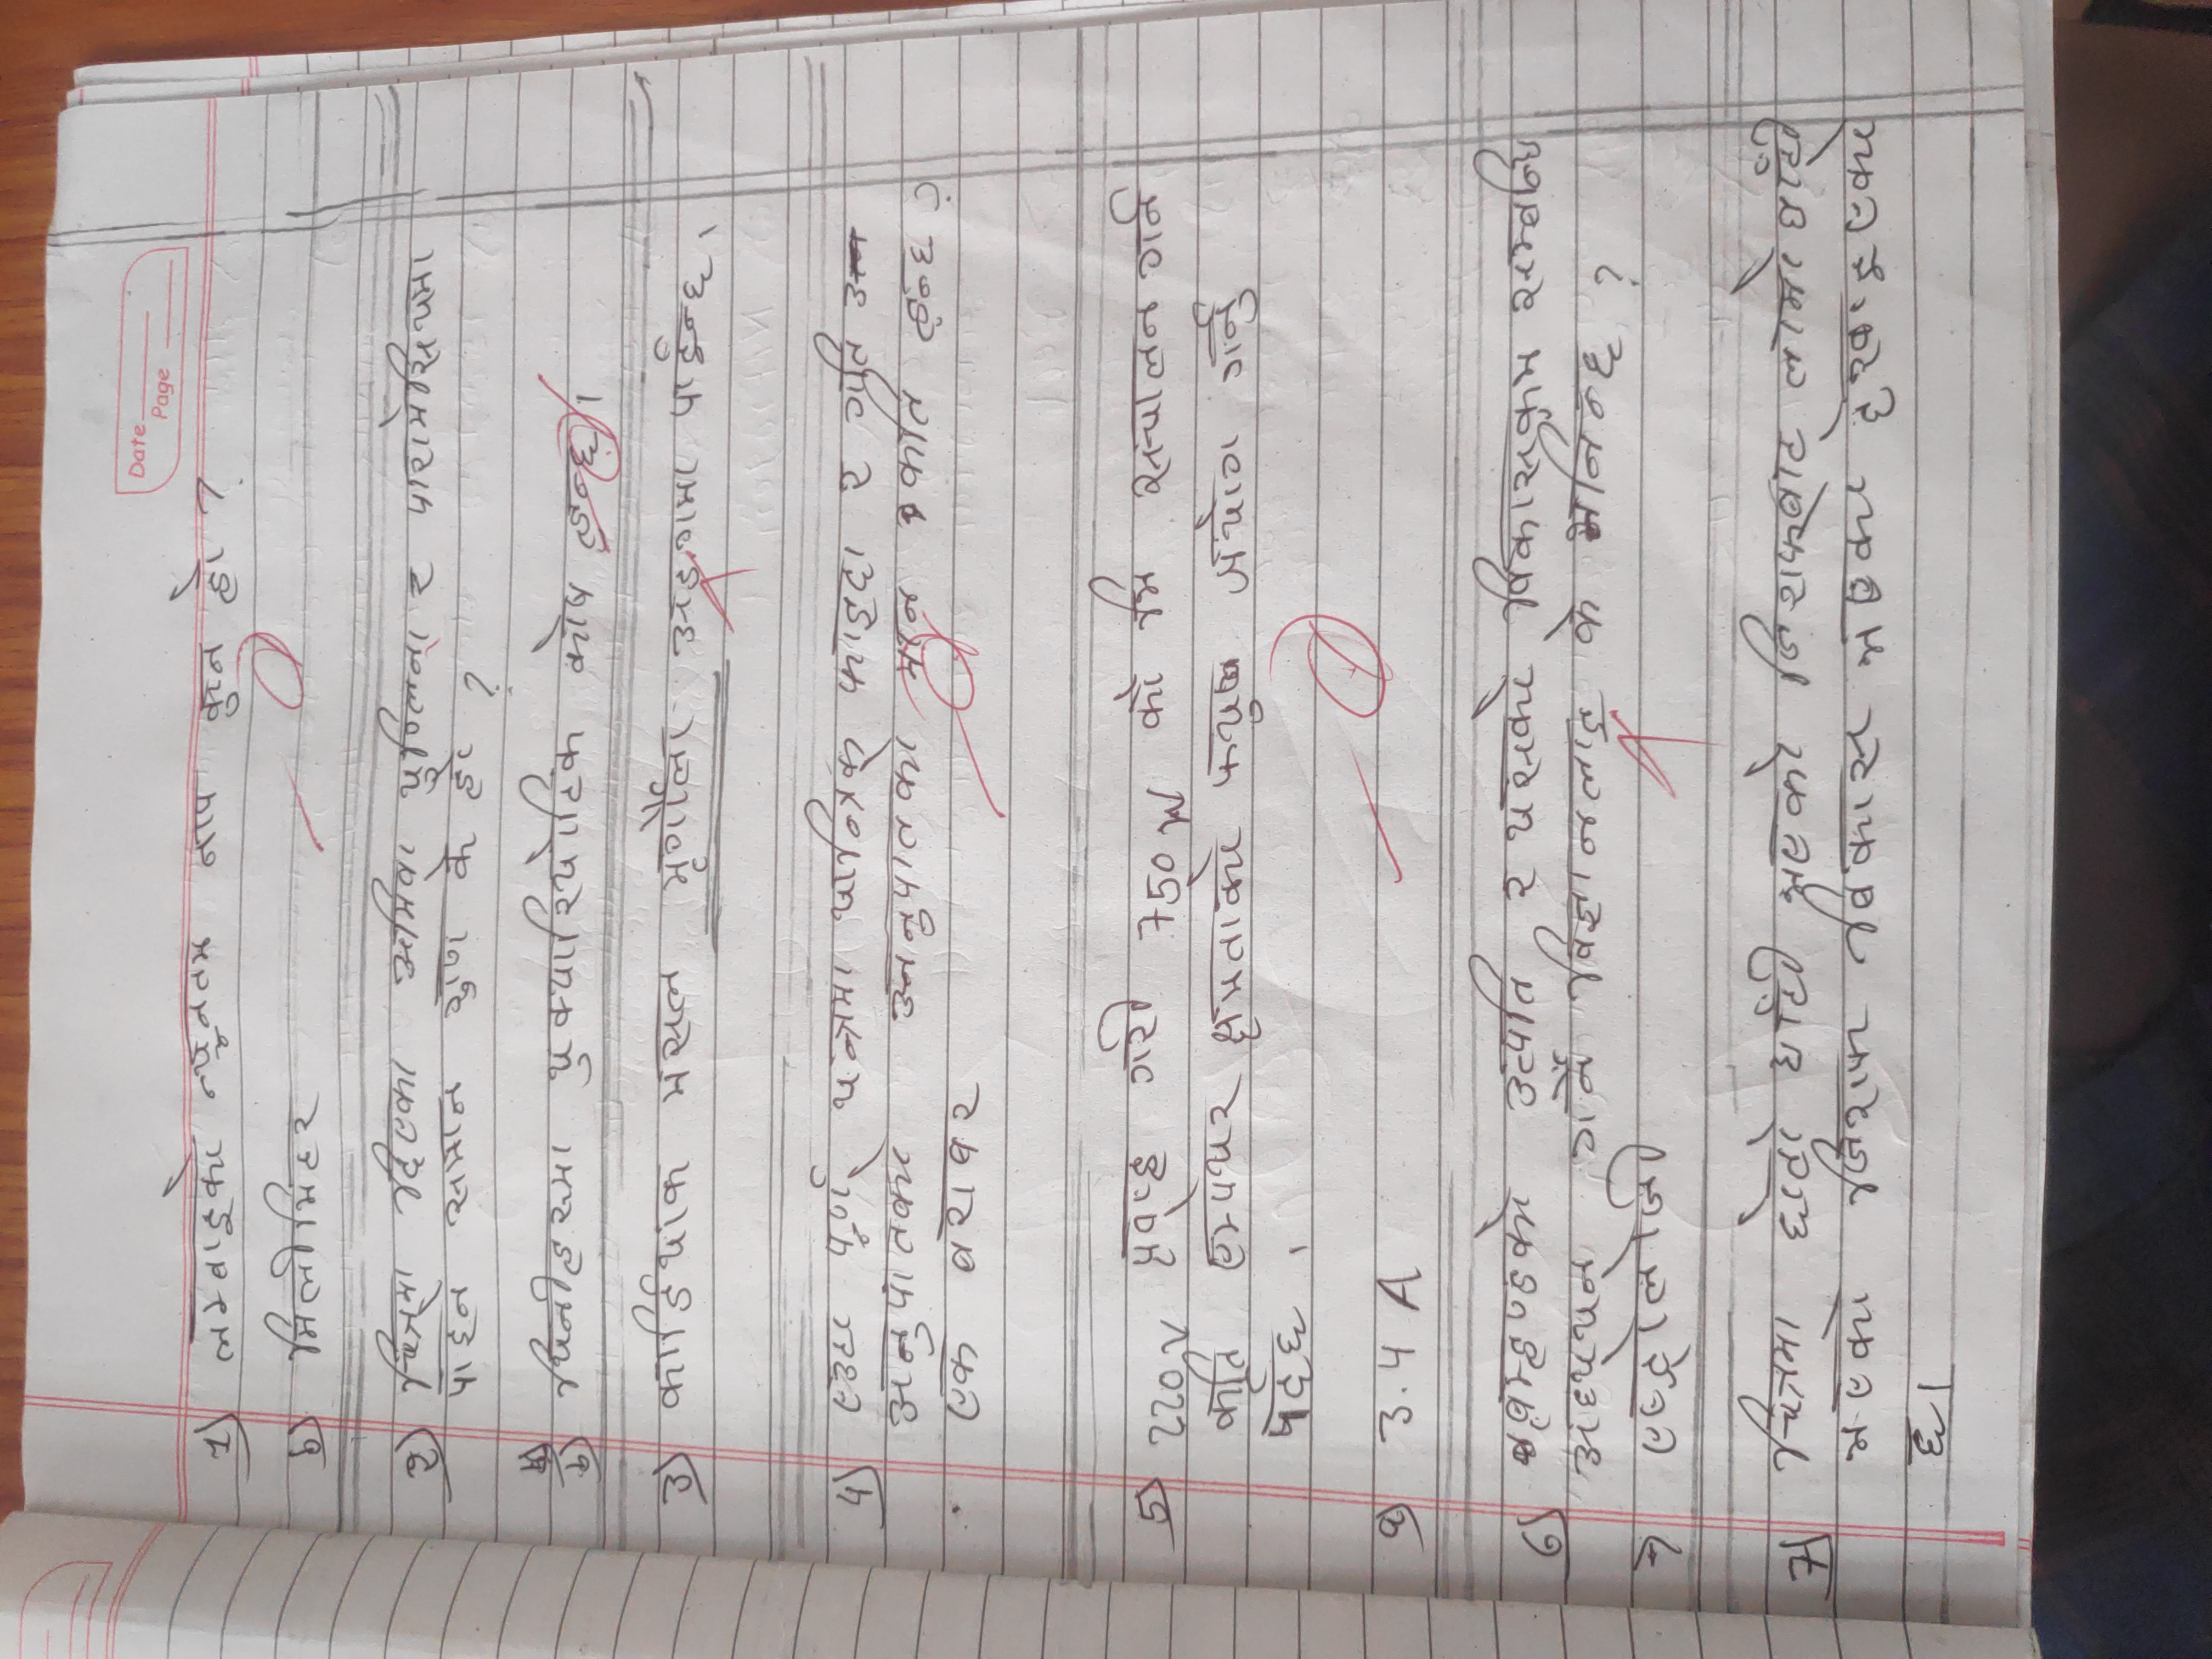 Date
Page
1) लम्बाइको न्यूनतम नाप कुन हो ?
b) मिलीमिटर
2) चित्रमा दिएका अमिवा युग्लिना र पारामेसियममा
पाइने समान गुण के हो ?
b) यिनीहरुमा युक्यारियोटिक कोष हुन्छ।
3) कार्डियाक मसल मृगौला अङ्गमा पाईन्छ ।
4) एउटा पूर्ण यन्त्रमा यान्त्रिक फाइदा र गति
अनुपातको अनुपातको मान कति हुन्छ ?
एक बराबर
5) 220 V प्रवाह गरी 750 W को मि सन्चालन गर्न
कति एम्पियर क्षमताको फ्युज प्रयोग गर्नु
पर्दछ ।
a) 3.4 A
6) ब्रम्हण्डको उत्पति र यसको विकासक्रम सम्बन्धि
अध्ययन गर्ने विज्ञानलाइ के भनिन्छ ?
एष्ट्रोलोजी
7) चित्रमा छोटो घाँटी भएको जिराफबाट लामो घाँटी
भएको जिराफ विकास भएको देखाइएको
छ।